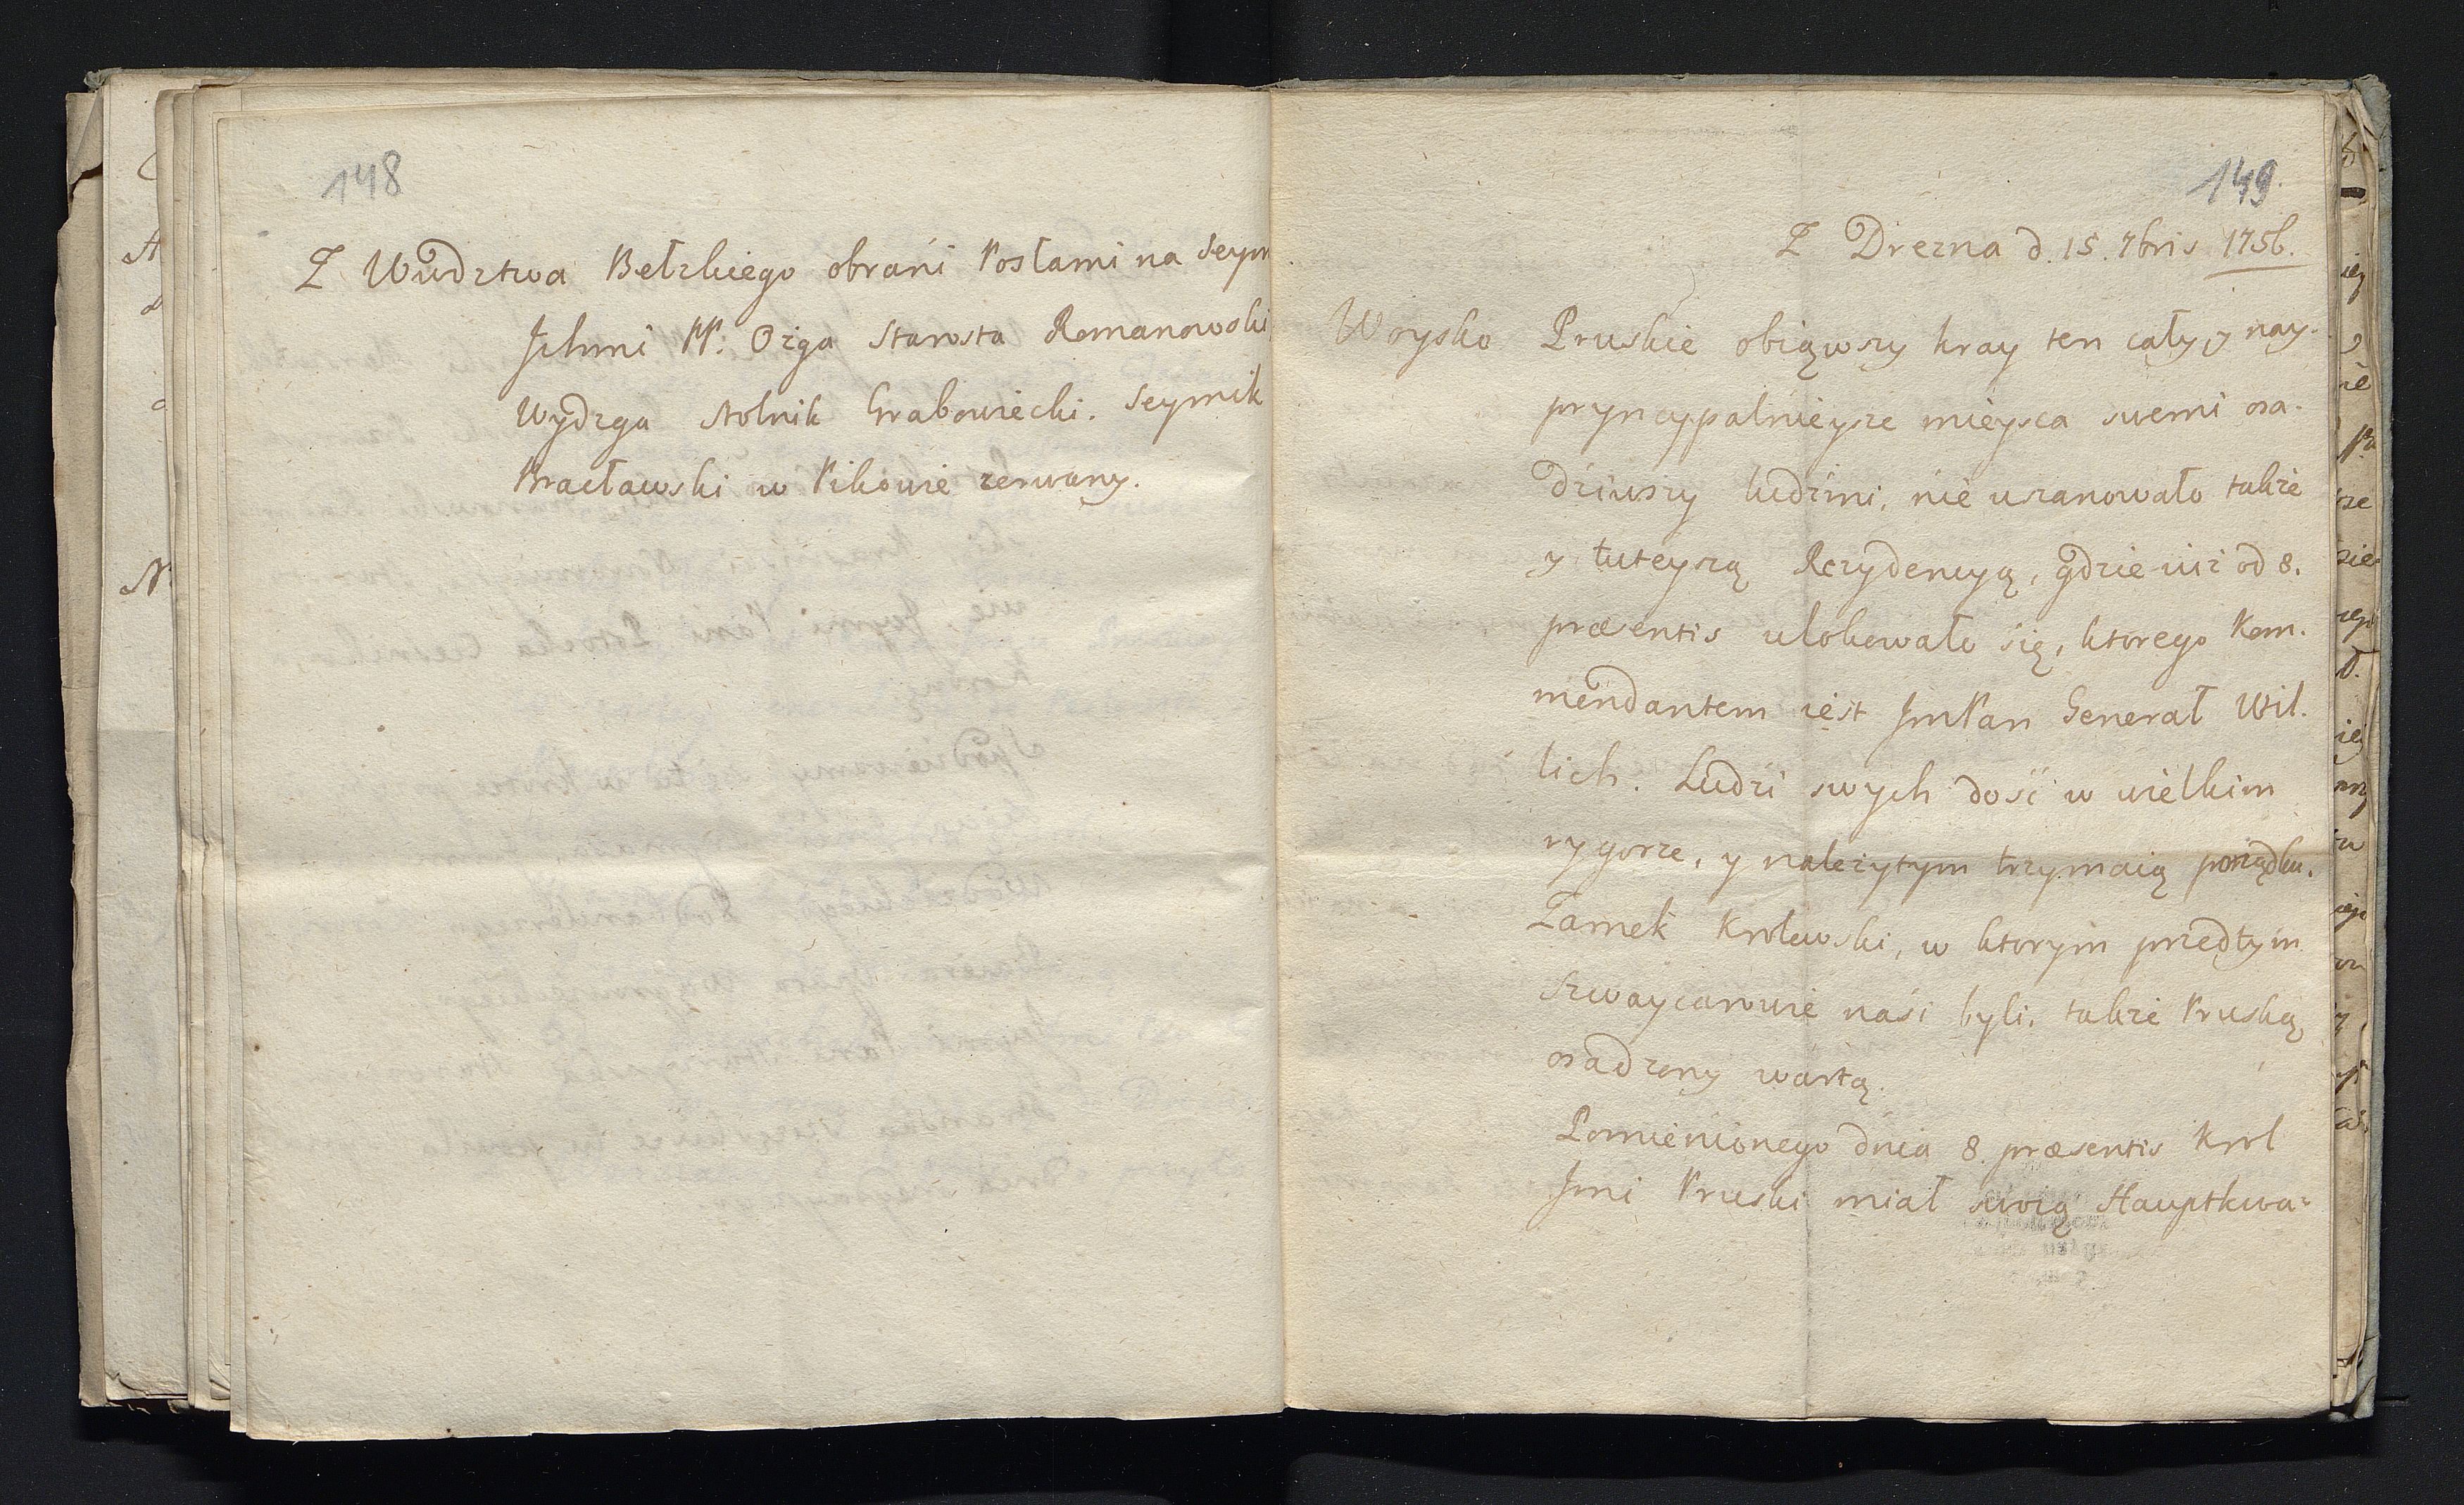 148
Z Wudztwa Bełzkiego obrani Posłami na Seym
Jchmi PP. Ożga Starosta Romanowski
Wydzga Stolnik Grabowiecki. Seymik
Bracławski w Pikowie zerwany.
149
Z Drezna d. 15. 7bris 1756.
Woysko Pruskie obiąwszy kray ten cały y nay-
pryncypalnieysze mieysca swemi osa-
dziwszy ludźmi, nie uszanowało także
y tuteyszą Rezydencyą, gdzie iuż od 8.
præsentis ulokowało się, ktorego Kom-
mendantem iest JmPan Generał Wil-
lich. Ludzi swych dość w wielkim
rygorze, y należytym trzymaią porządku.
Zamek Krolewski, w ktorym przedtym
Szwaycarowie naśi byli, także Pruską
osadzony wartą.
Pomienionego dnia 8. præsentis Krol
Jmć Pruski miał swoią Hauptkwa-